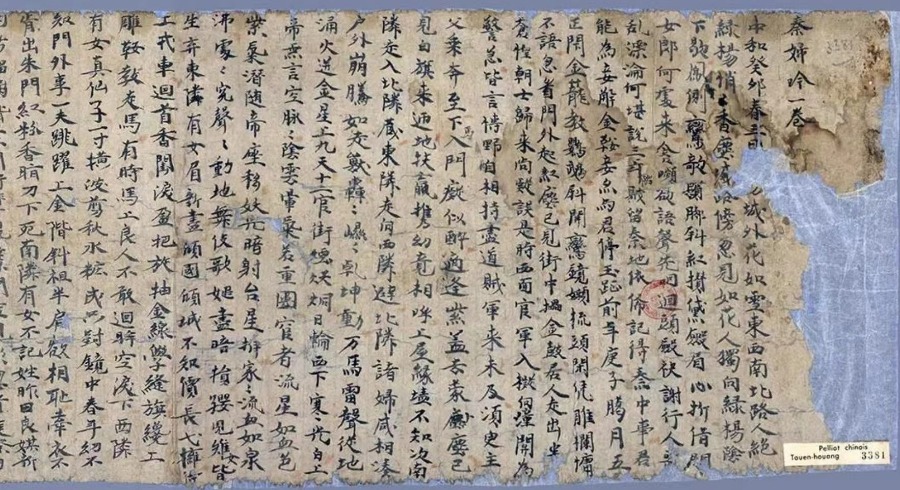 秦婦吟一卷
中和癸卯春三月 城外花如雪東西南北路人絕
綠楊悄悄香塵滅路傍忽見如花人獨向綠楊陰
下歇鳳側鸞欹鬢脚斜紅攢黛斂眉心折借問
女郎何處來含嚬欲語聲先咽迴頭斂袂謝行人喪
亂漂淪何堪說三年陷賊留秦地依俙記得秦中事君
能為妾解金鞍妾亦為君停玉趾前年庚子臘月五
正閇金籠教鸚鵡斜開鸞鏡嬾梳頭閑凭雕欄慵
不語忽看門外起紅塵已見街中擂金鼓居人走出半
蒼惶朝士歸來尚疑誤是時西面官軍入擬向潼關為
警急皆言博野自相持盡道賊軍來未及須臾主
父乘奔至下馬入門癡似醉適逢紫蓋去蒙塵已
見白旗來遍地扶羸携幼競相呼上屋緣墻不知次南
隣走入北隣藏東隣走向西隣避北隣諸婦咸相湊
戶外崩騰如走獸轟轟崐崐乾坤動万馬雷聲從地
涌火迸金星上九天十二官街煙烘烔日輪西下寒光白上
帝無言空脉脉陰雲暈氣若重圍宦者流星如血色
紫氣潛隨帝座移妖光暗射台星拆家家流血如泉
沸處處冤聲聲動地舞伎歌姬盡暗損嬰兒稚女皆
生弃東隣有女眉新畫傾國傾城不知價長戈擁得
上戎車迴首香閨淚盈把旋抽金線學縫旗纔上
雕鞍教走馬有時馬上見良人不敢迴眸空淚下西隣
有女真仙子一寸橫波剪秋水粧成只對鏡中春年幼不
知門外事一夫跳躍上金階斜袒半肩欲相恥牽衣不
肯出朱門紅粉香脂刀下死南隣有女不記姓昨日良媒新
Pelliot chinois
Touen-houang 3381